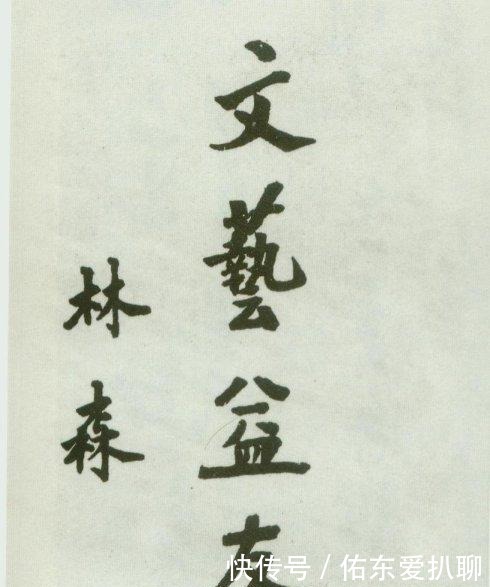 文藝益友
林森
快传号 / 佑东爱扒聊